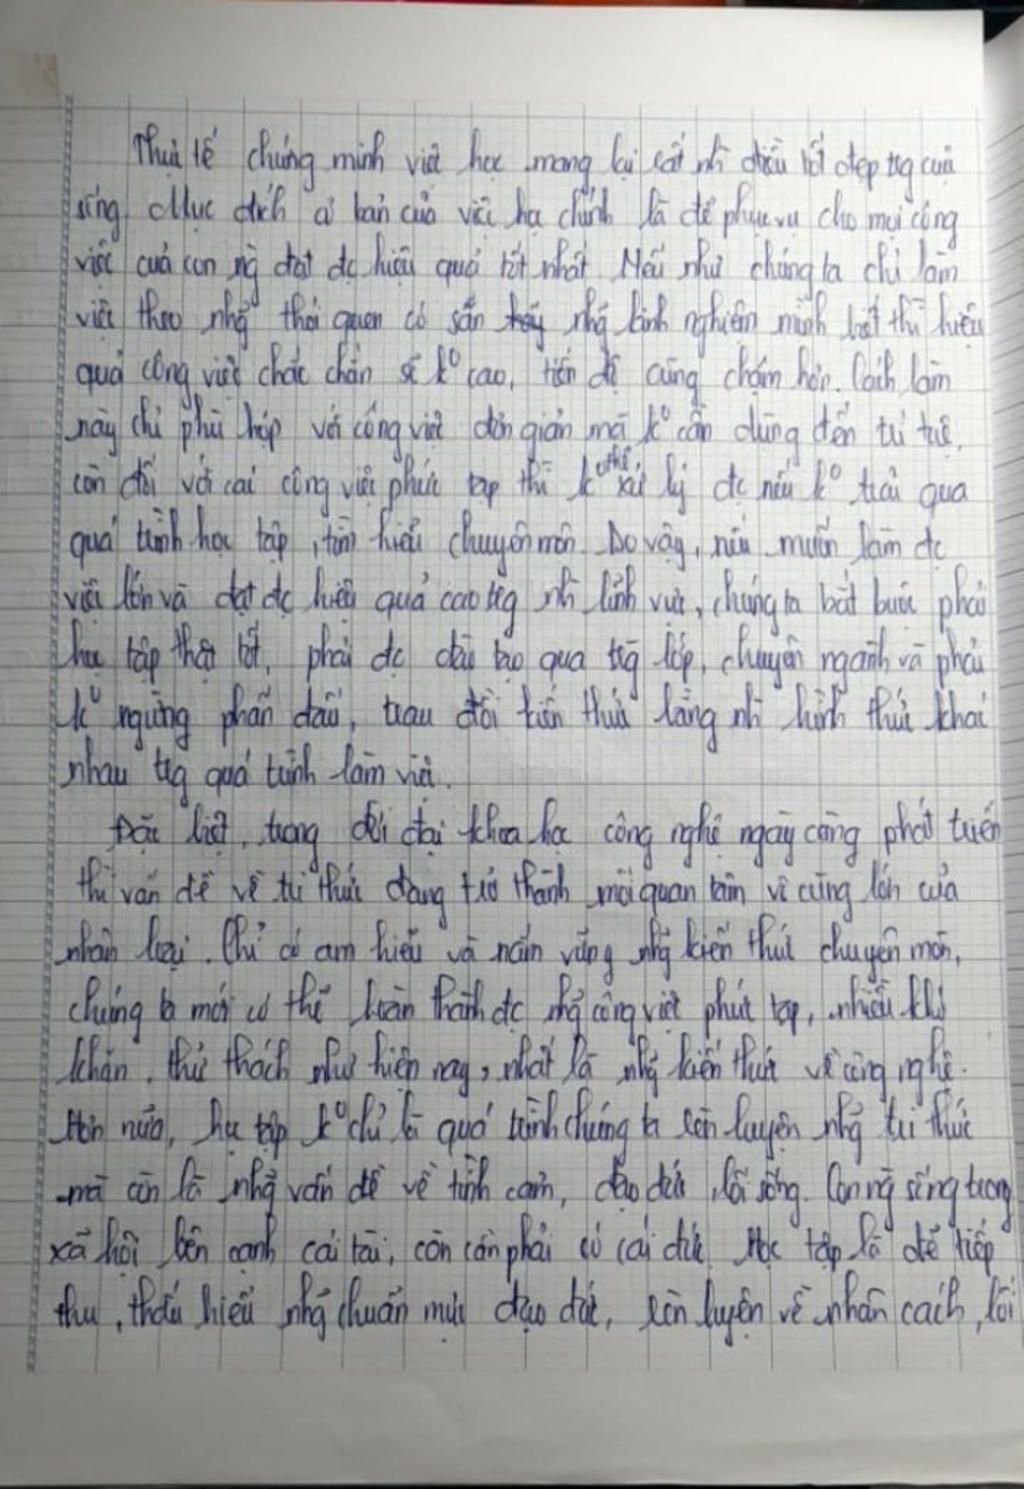 Thực tế chứng minh việc học mang lại rất nh điều tốt đẹp trg cuộc
sống. Mục đích cơ bản của việc học chính là để phục vụ cho mọi công
việc của con ng đạt đc hiệu quả tốt nhất. Nếu như chúng ta chỉ làm
việc theo nhg thói quen có sẵn nhg kinh nghiệm mình biết thì hiệu
quả công việc chắc chắn sẽ k° cao, tiến độ cũng chậm hơn. Cách làm
này chỉ phù hợp với công việc đơn giản mà k° cần dùng đến trí tuệ,
còn đối với các công việc phức tạp thì k° thể xử lý đc nếu k° trải qua
quá trình học tập, tìm hiểu chuyên môn. Do vậy, nếu muốn làm đc
việc lớn và đạt đc hiệu quả cao trg nh lĩnh vực, chúng ta bắt buộc phải
học tập thật tốt, phải đc đào tạo qua trg lớp, chuyên ngành và phải
k° ngừng phấn đấu, trau dồi kiến thức bằng nh hình thức khác
nhau trg quá trình làm việc.
Đặc biệt, trong đời đại khoa học công nghệ ngày càng phát triển
thì vấn đề về tri thức đang trở thành mối quan tâm vì cùng lớn của
nhân loại. Chỉ có am hiểu và nắm vững nhg kiến thức chuyên môn,
chúng ta mới có thể hoàn thành đc nhg công việc phức tạp, nhiều khó
khăn, thử thách như hiện nay, nhất là nhg kiến thức về công nghệ.
Hơn nữa, học tập k° chỉ là quá trình chúng ta rèn luyện nhg tri thức
mà còn là nhg vấn đề về tình cảm, đạo đức, lối sống. Con ng sống trong
xã hội bên cạnh cái tài, còn cần phải có cái đức. Học tập là để tiếp
thu, thấu hiểu nhg chuẩn mực đạo đức, rèn luyện về nhân cách, lối